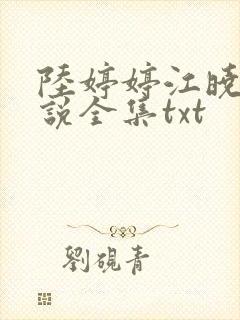 陸婷婷江曉
說全集txt
劉硯青